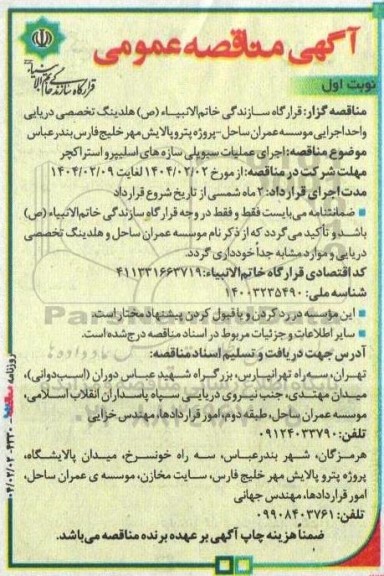 آگهی مناقصه عمومی
قرارگاه سازندگی خاتم الانبیاء
نوبت اول
مناقصه گزار: قرارگاه سازندگی خاتم‌الانبیاء (ص) هلدینگ تخصصی دریایی
واحد اجرایی موسسه عمران ساحل -پروژه پتروپالایش مهر خلیج فارس بندرعباس
موضوع مناقصه: اجرای عملیات سیویلی سازه های اسلیپر و استراکچر
مهلت شرکت در مناقصه: از مورخ ۱۴۰۴/۰۲/۰۲ لغایت ۱۴۰۴/۰۲/۰۹
مدت اجرای قرارداد: ۲ ماه شمسی از تاریخ شروع قرارداد
ضمانتنامه می‌بایست فقط و فقط در وجه قرارگاه سازندگی خاتم‌الانبیاء (ص)
باشد و تأکید می‌گردد که از ذکر نام موسسه عمران ساحل و هلدینگ تخصصی
دریایی و موارد مشابه جداً خودداری گردد.
کد اقتصادی قرارگاه خاتم‌الانبیاء: ۴۱۱۳۳۱۶۶۳۷۱۹
شناسه ملی: ۱۴۰۰۳۲۳۵۴۹۰
این مؤسسه در رد کردن و یا قبول کردن پیشنهاد مختار است.
سایر اطلاعات و جزئیات مربوط در اسناد مناقصه درج شده است.
آدرس جهت دریافت و تسلیم اسناد مناقصه:
تهران، سه‌راه تهرانپارس، بزرگراه شهید عباس دوران (اسب‌دوانی)،
میدان مهتدی، جنب نیروی دریایی سپاه پاسداران انقلاب اسلامی،
موسسه عمران ساحل، طبقه دوم، امور قراردادها، مهندس خزایی
تلفن: ۰۹۱۲۴۰۳۳۷۹۰
هرمزگان، شهر بندرعباس، سه راه خونسرخ، میدان پالایشگاه،
پروژه پترو پالایش مهر خلیج فارس، سایت مخازن، موسسه ی عمران ساحل،
امور قراردادها، مهندس جهانی
تلفن: ۰۹۹۰۸۴۰۳۷۶۱
ضمناً هزینه چاپ آگهی بر عهده برنده مناقصه می‌باشد.
روزنامه
۰۴/۰۲/۰۲-۴۳۳۰